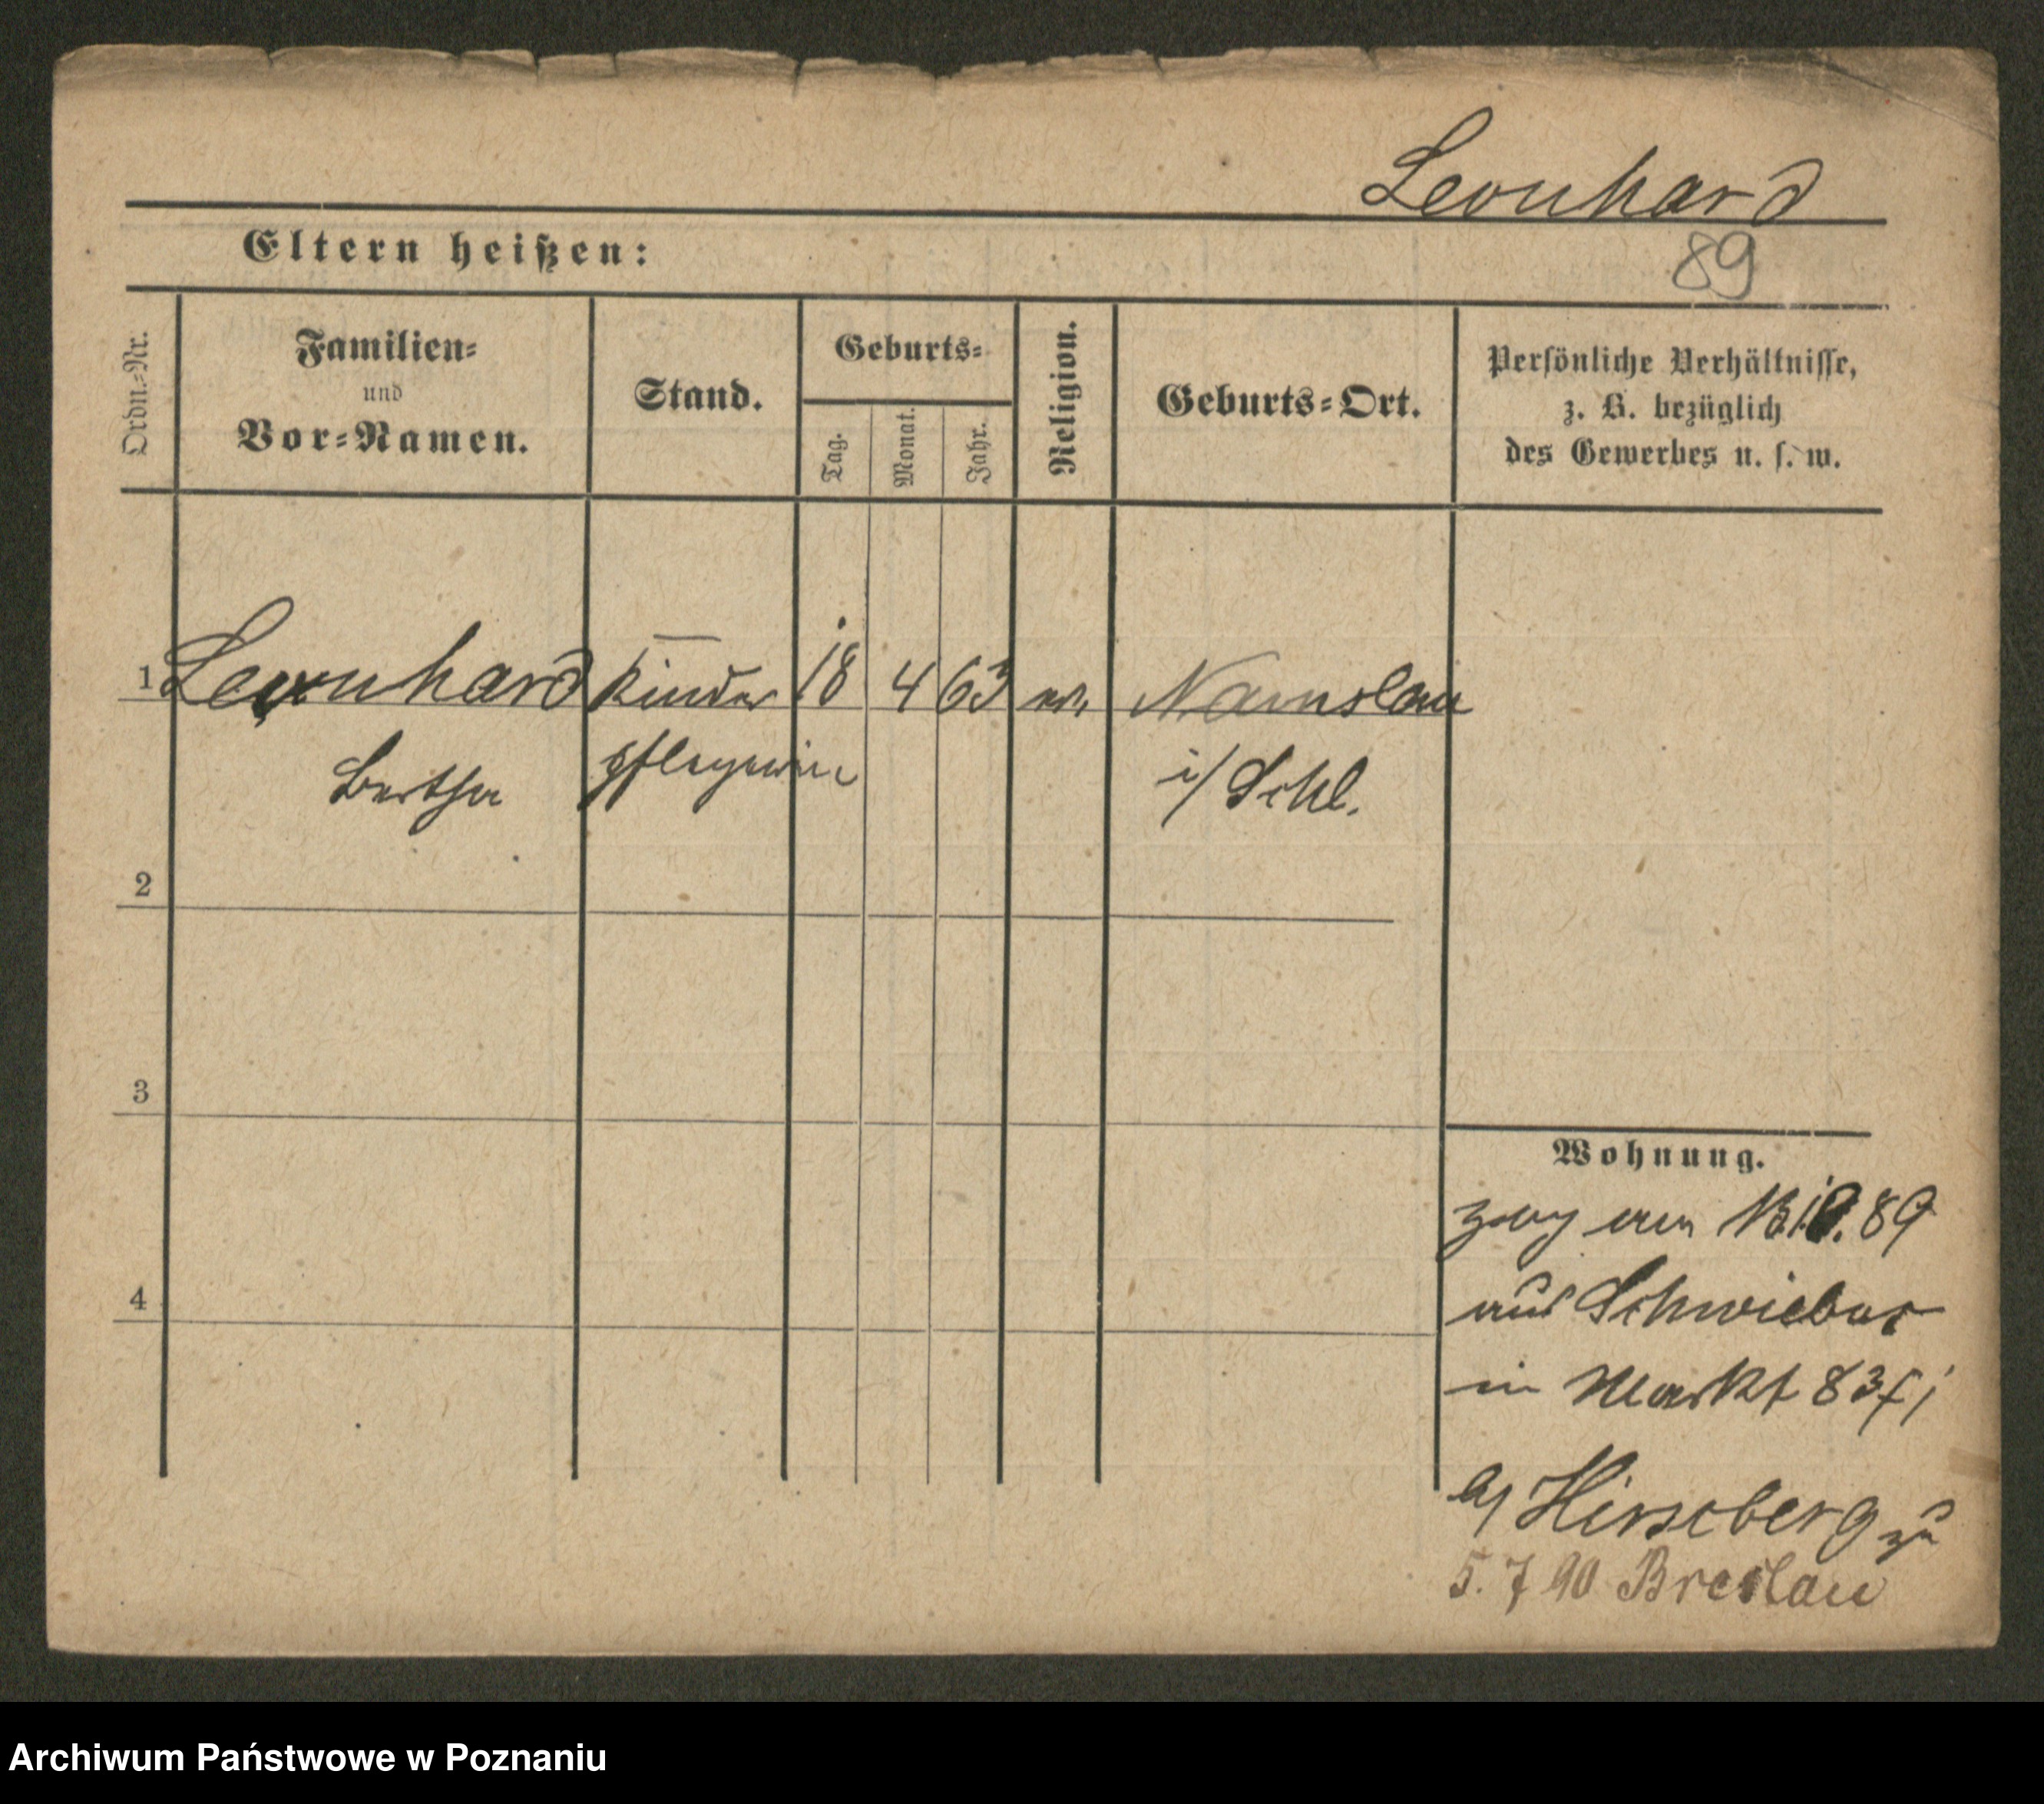 Leonhard
89
Eltern heißen:
Ordn.-Nr.
Familien-
und
Vor-Namen.
Stand.
Geburts-
Tag.
Monat.
Jahr.
Religion.
Geburts-Ort.
Persönliche Verhältnisse,
z. B. bezüglich
des Gewerbes u. s. w.
1 Leonhard Kinder 18 4 63 ev. Namslau
Bertha pflegerin i/ Schl.
2
3
4
Wohnung.
zog am 89
aus Schwiebus
in Markt 83
b/ Hirschberg zu
5. 7 90 Breslau
Archiwum Państwowe w Poznaniu